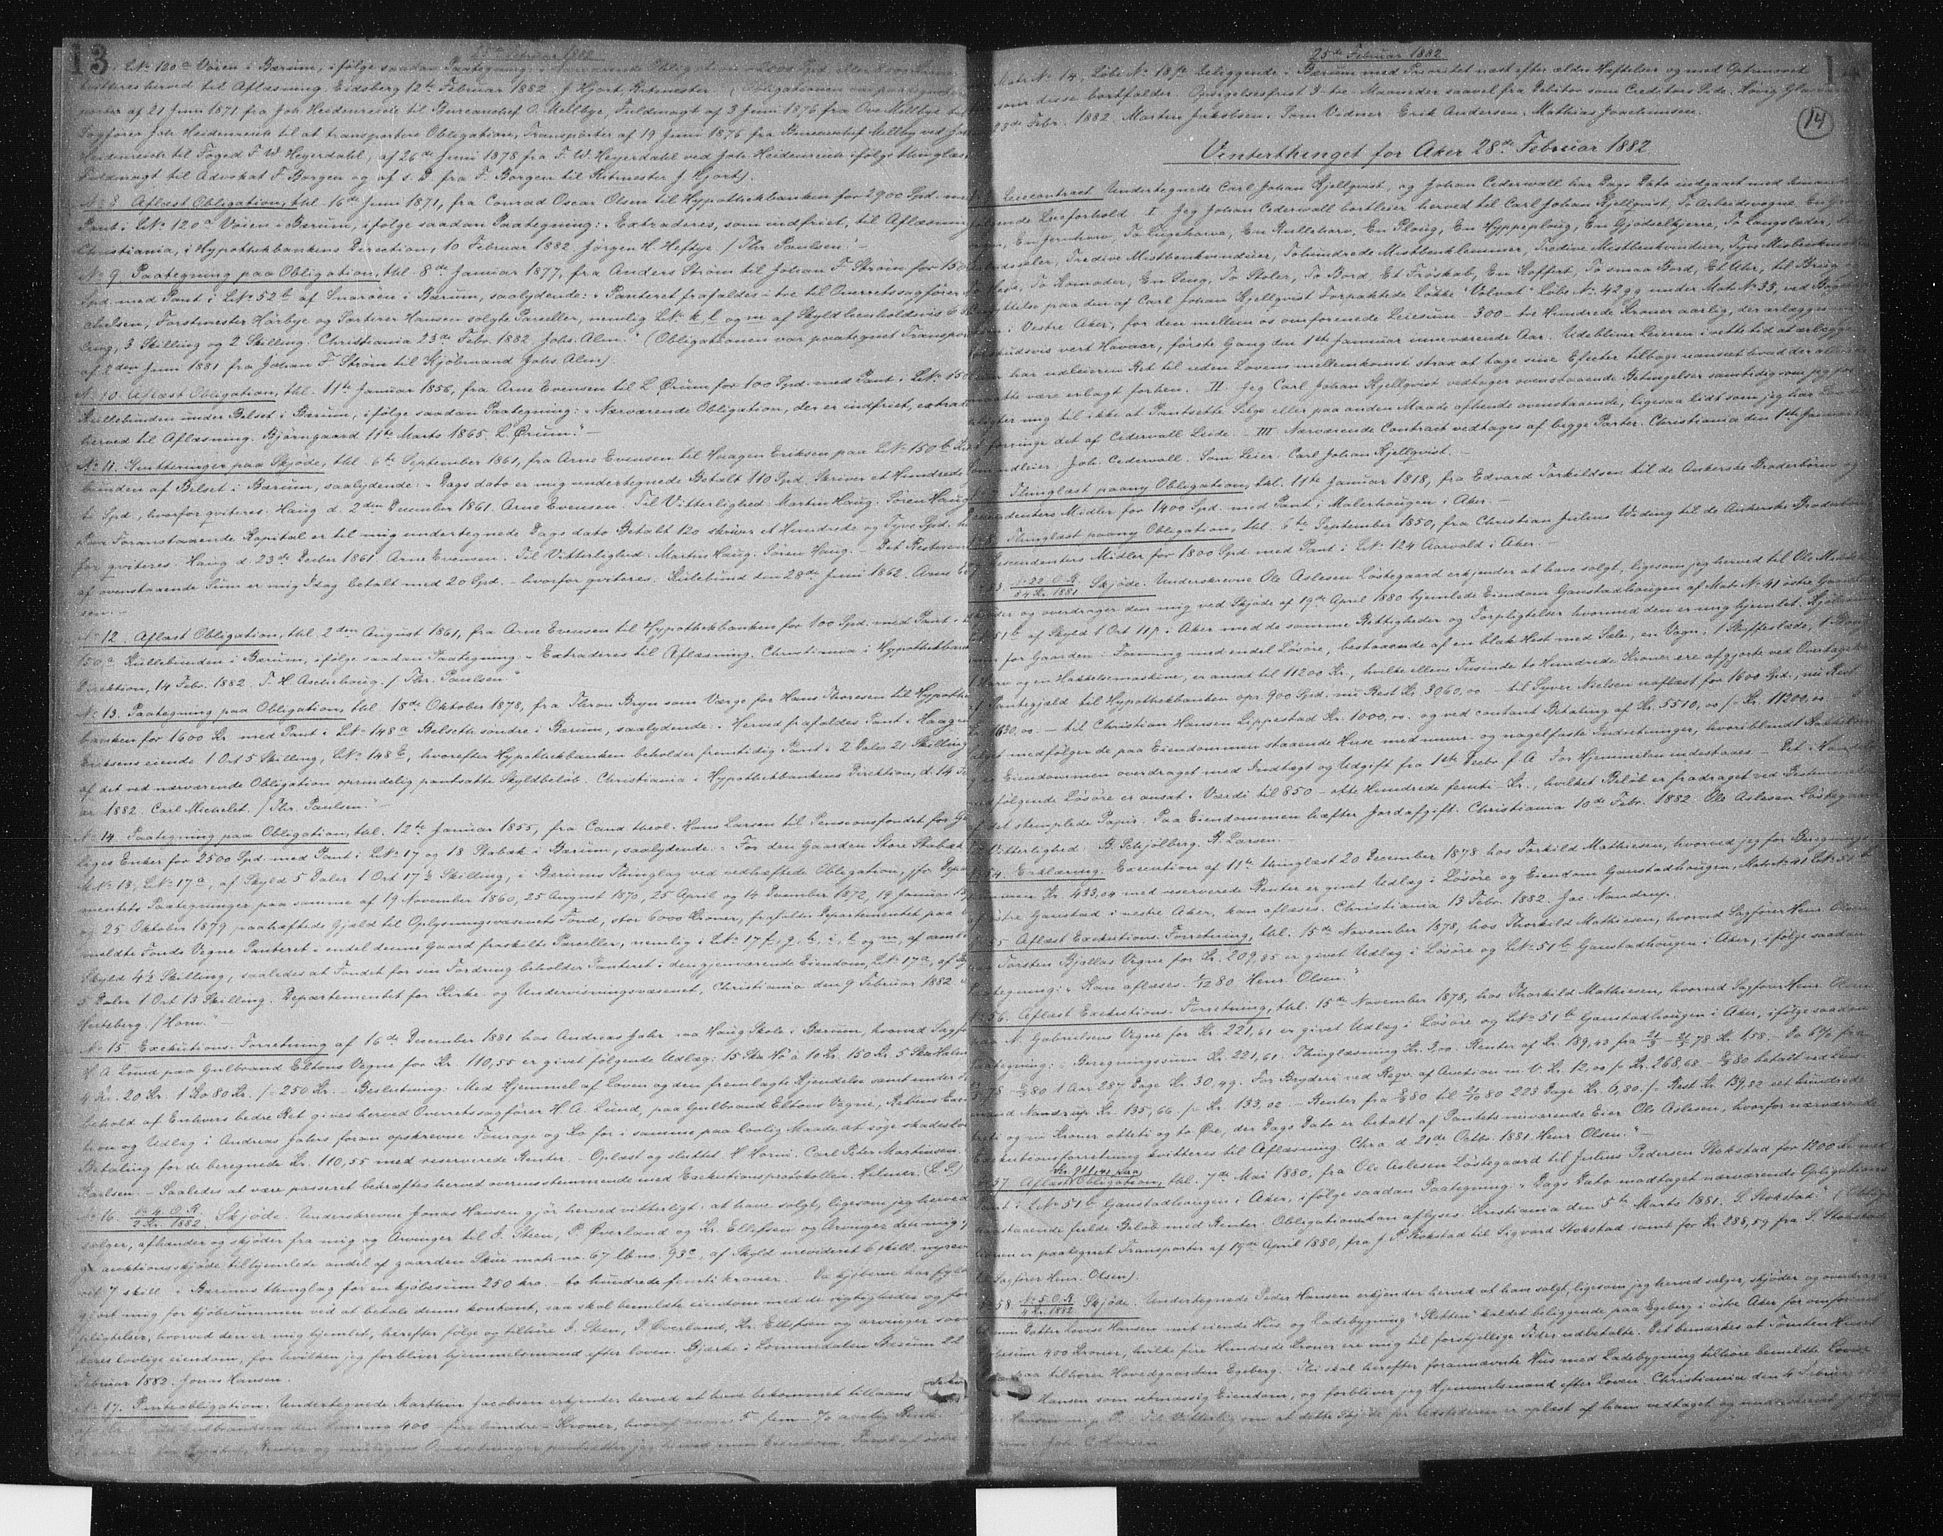 13
25de Februar 1882
L.No 120a Voien i Bærum, ifølge saadan Paategning: Nærværende Obligation
kvitteres herved til Aflæsning. Eidsberg 12te Februar 1882 J Hjort Ritmester. (Obligationen var paategnet Trans-
porter af 21 Juni 1871 fra Joh Heidenreich til Bureauchef O. Mellbye, Fuldmagt af 3 Juni 1876 fra Ove Mellbye til
Sagfører Joh. Heidenreich til at transportere Obligation, Transporter af 19 Juni 1876 fra Bureauchef Mellby ved Joh
Heidenreich til Foged F W Heyerdahl, af 26de Juni 1878 fra F. W. Heyerdahl ved Joh Heidenreich ifølge thinglæst
Fuldmagt til Advokat F Borgen og af s. D. fra F. Borgen til Ritmester J Hjort).
No 8. Aflæst Obligation, thl. 16de Juni 1871, fra Conrad Oscar Olsen til Hypothekbanken for 2900 Spd. med
Pant i L.No 120a Voien i Bærum, ifølge saadan Paategning: Extraderes, som indfriet, til Aflæsning
Christiania, i Hypothekbankens Direction, 10 Februar 1882. Jørgen H. Heftye / Thr. Paulsen.
No 9. Paategning paa Obligation, thl. 8de Januar 1877, fra Anders Strøm til Johan F Strøm for 150
Spd. med Pant i L.No 52b af Snarøen i Bærum, saalydende: Panteret frafaldes i tre til Overretssagfører
Forstmester Hørbye og Sarterer Hansen solgte Parceller, nemlig L.No k l og m af Skyld
3 Skilling og 2 Skilling. Christiania 23de Febr. 1882 Johs. Alm." (Obligationen var paategnet Transport
af 2den Juni 1881 fra Johan F Strøm til Kjøbmand Johs Alm).
No 10. Aflæst Obligation, thl. 11te Januar 1856, fra Arne Evensen til L. Ørum for 100 Spd. med Pant i L.No 150
Kullebunden under Belset i Bærum, ifølge saadan Paategning: Nærværende Obligation, der er indfriet, extraderes
herved til Aflæsning. Bjørngaard 11te Marts 1865. L. Ørum."
No 11. Kvitteringer paa Skjøde, thl. 6te September 1861, fra Arne Evensen til Haagen Eriksen paa L.No 150b
bunden af Belset i Bærum, saalydende: Dags dato er mig undertegnede Betalt 110 Spd. Skriver et Hundrede
ti Spd., hvorfor qviteres. Haug d. 2den December 1861. Arne Evensen. Til Vitterlighed: Martin Haug. Søren Haug
Paa Foranstaaende Kapital er til mig undertegnede Dags dato Betalt 120 skriver et Hundrede og Tyve Spd.
for qviteres. Haug d. 23de Decber 1861. Arne Evensen. Til Vitterlighed: Martin Haug. Søren Haug. Det Resterende
af ovenstaaende Sum er mig Idag betalt med 20 Spd. hvorfor qviteres. Kulebund den 28de Juni 1862. Arne Even-
sen.
No 12. Aflæst Obligation, thl. 2den August 1861, fra Arne Evensen til Hypothekbanken for 100 Spd. med Pant i
150a Kullebunden i Bærum, ifølge saadan Paategning: Extraderes til Aflæsning. Christiania i Hypothekbankens
Direktion, 14 Febr. 1882. T. H. Aschehoug. / Thr. Paulsen."
No 13. Paategning paa Obligation, thl. 18de Oktober 1878, fra Theron Bryn som Værge for Hans Thoresen til Hypothek-
banken for 1600 Kr. med Pant i L.No 148a Belsett søndre i Bærum, saalydende: Herved frafaldes Pant i Haagen
Eriksens eiende 1 Ort 5 Skilling, L.No 148b, hvorefter Hypothekbanken beholder fremtidig Pant i 2 Daler 21 Skilling
af det ved nærværende Obligation oprindelig pantsatte Skyldbeløb. Christiania i Hypothekbankens Direktion, d. 14
ar 1882. Carl Michelet. / Thr. Paulsen."
No 14. Paategning paa Obligation, thl. 12te Januar 1855, fra Cand theol. Hans Larsen til Pensionsfondet for
liges Enker for 2500 Spd. med Pant i L.No 17 og 18 Stabæk i Bærum, saalydende: For den Gaarden Store Stabæk
M.No 13, L.No 17a, af Skyld 5 Daler 1 Ort 17½ Skilling, i Bærums Thinglag ved vedhæftede Obligation, jfr Departe-
mentets Paategninger paa samme af 19 November 1860, 25 August 1870, 25 April og 14 December 1872, 19 Januar
og 25 Oktober 1879 paahæftede Gjæld til Oplysningsvæsenets Fond, stor 6000 Kroner, frafalder Departementet paa
meldte Fonds Vegne Panteret i endel denne Gaard fraskilte Parceller, nemlig i L.No 17 f, g, h, i, k og m, af samlet
Skyld 4½ Skilling, saaledes at Fondet for sin Fordring beholder Panteret i den gjenværende Eiendom, L.No 17a, af
5 Daler 1 Ort 13 Skilling. Departementet for Kirke og Undervisningsvæsenet, Christiania den 9 Februar 1882
Hertzberg. / Horn."
No 15. Exekutions Forretning af 16de December 1881 hos Andreas Jahr paa Haug Skole i Bærum, hvorved Sagfører
H. A. Lund paa Gulbrand Eltons Vegne for Kr. 110,55 er givet følgende Udlæg: 15 Skn Hø à 10 Kr. 150 Kr. 5 Skn Halm
4 Kr. 20 Kr. 1 Ko 80 Kr. /: 250 Kr. Beslutning: Med Hjemmel af Loven og den fremlagte Kjendelse samt under
behold af Enhvers bedre Ret gives herved Overretssagfører H. A. Lund, paa Gulbrand Eltons Vegne, Rettens Execu-
tion og Udlæg i Andreas Jahrs foran opskrevne Fourage og Ko for i samme paa lovlig Maade at søge skadesløs
Betaling for de beregnede Kr. 110,55 med reserverede Renter. Oplæst og sluttet. H Horni. Carl Peter Martinsen.
Karlsen. Saaledes at være passeret bekræftes herved overensstemmende med Executionsprotokollen. Helmer. (L.S.)
No 16. No 4. O.R. 2 Kr. 1882. Skjøde. Underskrevne Jonas Hansen gjør herved vitterligt: at have solgt, ligesom jeg herved
sælger, afhænder og skjøder fra mig og Arvinger til J. Steen, P. Øverland og Kr. Ellefsen og Arvinger den mig
auktionsskjøde tilhjemlede andel af gaarden Skui matr. no. 67 lb. no. 93c, af Skyld urevideret 6 skill. nyrevi
vil 7 skill. i Bærums thinglag for en kjøbesum 250 kro. to hundrede femti kroner. Da kjøberne har fyldest-
gjort mig for kjøbesummen ved at betale denne kontant, saa skal bemeldte eiendom med de rigtigheder og for-
pligtelser, hvorved den er mig hjemlet, herefter følge og tilhøre J. Steen, P. Øverland, Kr. Ellefsen og arvinger som
deres lovlige eiendom, for hvilken jeg forbliver hjemmelsmand efter loven. Bjerke i Lommedalen Bærum 22
Februar 1882. Jonas Hansen.
No 17. Panteobligation. Undertegnede Marthin Jacobsen erkjender herved at have bekommet tillaans
Gulbrandsen den summa 400 fire hundre Kroner, hvoraf svares 5 fem % aarlig Rente.
25de Februar 1882
14
Matr No 14, Løbe No 18 fc beliggende i Bærum med Prioritet næst efter ældre Heftelser og med Oprukningsret
som disse bortfalder. Opsigelsesfrist 3 tre Maaneder saavel fra Debitor som Creditors Side. Hövig Glasværk
23de Febr. 1882. Martin Jakobsen. Som Vidner Erik Andersen. Mathias Joachimsen.
Vinterthinget for Aker 28de Februar 1882
Leiecontract. Undertegnede Carl Johan Kjellqvist, og Johan Cederwall har Dags Dato indgaaet med hinanden
følgende Leieforhold. I. Jeg Johan Cederwall bortleier herved til Carl Johan Kjellqvist, To Arbeidsvogne, En
En Jernharv, To Lugeharve, En Rulleharv, En Ploug, En Hyppeploug, En Gjødselkjerre, To Langslæder,
Tredive Mistbenkvinduer, Tohundrede Mistbenklemmer, Tredive Mistbenkvinduer, Tyve Mistbenkvinduer
To Komoder, En Seng, To Stoler, To Bord, Et Frøskab, En Koffert, To smaa Bord, Et Uhr, til Brug og
paa den af Carl Johan Kjellqvist Forpaktede Løkke "Volvat" Løbe No 429g under Matr No 33, ved
Vestre Aker, for den mellem os omforenede Leiesum 300 tre Hundrede Kroner aarlig, der erlægges
skudsvis vert Havaar, første Gang den 1ste Januar inneværende Aar. Udebliver Leieren i rette tid at erlægge
har udleieren Ret til uden Lovens mellemkomst strax at tage sine Efecter tilbage uanseet hvad der allerede
maatte være erlagt forhen. II. Jeg Carl Johan Kjellqvist vedtager ovenstaaende Betingelser samtidig som jeg for-
pligter mig til ikke at Pantsette Selge eller paa anden Maade afhende ovenstaaende, ligesaa lidt som jeg har
forringe det af Cederwall Leiede. III. Nærværende Contract vedtages af begge Parter. Christiania den 1ste Januar
Udleier Joh. Cederwall. Som Leier Carl Johan Kjellqvist.
Thinglæst paany Obligation, thl. 11te Januar 1818, fra Edvard Torkildsen til de Ankerske Brødrebørns og
Descendenters Midler for 1400 Spd. med Pant i Malerhaugen i Aker.
Thinglæst paany Obligation, thl. 6te September 1850, fra Christian Julius Widing til de Ankerske Brødrebørns
Descendenters Midler for 1800 Spd med Pant i L.No 124 Aarvold i Aker.
53. No 22 O.R. 84 Kr. 1881 Skjøde. Underskrevne Ole Aslesen Løstegaard erkjender at have solgt, ligesom jeg herved til Ole
skjøder og overdrager den mig ved Skjøde af 19de April 1880 hjemlede Eiendom Ganstadhougen af Matr No 41 østre Ganstad
51b af Skyld 1 Ort 11 β i Aker med de samme Rettigheder og Forpligtelser hvormed den er mig hjemlet. Kjøbesum-
men for Gaarden i Forening med endel Løsøre, bestaaende af en blak Hest med Sele, en Vagn, 1 Skuffeslæde, 1 Ploug
1 Harv og en Hakkelsemaskine, er ansat til 11200 Kr., hvilke elleve Tusinde to Hundrede Kroner ere afgjorte ved Overtagelse
af Pantegjæld til Hypothekbanken opr. 900 Spd., nu Rest Kr. 3060,00 til Syver Nielsen uaflæst for 1600 Spd., nu Rest
1630,00 til Christian Hansen Lippestad Kr. 1000,00. og ved contant Betaling af Kr. 5510,00 /: Kr. 11200,00
medfølger de paa Eiendommen staaende Huse med muur- og nagelfaste Indretninger, hvoriblandt
Eiendommen overdraget med Indtægt og Udgift fra 1ste Decbr f. A. For Hjemmelen indestaaes. Det i Handelen
medfølgende Løsøre er ansat i Værdi til 850 otte Hundrede femti Kr., hvilket Beløb er fradraget ved Bestemmelsen
af det stemplede Papir. Paa Eiendommen hæfter Jordafgift. Christiania 10de Febr. 1882. Ole Aslesen Løstegaard
Til Vitterlighed: B. Schjølberg. R. Larsen.
54. Erklæring. Execution af 11te thinglæst 20 December 1878 hos Torkild Mathiesen, hvorved jeg for Beregnings-
summen Kr. 433,04 med reserverede Renter er givet Udlæg i Løsøre og Eiendom Ganstadhougen, Matr No 41 L.No 51b
af østre Ganstad i vestre Aker, kan aflæses. Christiania 13 Febr. 1882. Jac. Nandrup.
55. Aflæst Exekutions Forretning, thl. 15de November 1878, hos Thorkild Mathiesen, hvorved Sagfører Henr. Olsen
paa Torsten Bjellas Vegne for Kr. 209,85 er givet Udlæg i Løsøre og L.No 51b Ganstadhougen i Aker, ifølge saadan
Paategning: Kan aflæses. 1/12 80 Henr. Olsen."
No 56. Aflæst Exekutions Forretning, thl. 15de November 1878, hos Thorkild Mathiesen, hvorved Sagfører Henr. Olsen
paa N. Gabrielsens Vegne for Kr. 221,61 er givet Udlæg i Løsøre og L.No 51b Ganstadhougen i Aker, ifølge saadan
Paategning: Beregningssum Kr. 221,61. Thinglæsning Kr. 3,00. Renter af Kr. 189,43 fra
80 1 Aar 287 Dage Kr. 30,49. For Bryderi ved Reqv. af Auction m. V. Kr. 12,00 /: Kr. 268,68 betalt ved Lens-
mand Nandrup Kr. 135,66 /: Kr. 133,02. Renter fra 80 til 80 223 Dage Kr. 6,80 /: Rest Kr. 139,82 et hundrede
treti og ni Kroner otteti og to Øre, der Dags Dato er betalt af Pantets nuværende Eier Ole Aslesen, hvorfor nærværende
Executionsforretning kvitteres til Aflæsning. Chra. d. 21de Octbr. 1881. Henr Olsen."
57. Aflæst Obligation, thl. 7de Mai 1880, fra Ole Aslesen Løstegaard til Julius Pedersen Stokstad for 1200 Kr. med
Pant i L.No 51b Ganstadhougen i Aker, ifølge saadan Paategning: Dags Dato modtaget nærværende Obligations
udestaaende fulde Beløb med Renter. Obligationen kan aflyses. Kristiania den 5te Marts 1881. S. Stokstad." (Obliga-
tionen er paategnet Transporter af 19de April 1880, fra J P Stokstad til Sigvard Stokstad samt for Kr. 288,59 fra S. Stokstad
til Sagfører Henr. Olsen).
58. No 5 O.R. 4 Kr. 1882 Skjøde. Undertegnede Peder Hansen erkjender herved at han solgt, ligesom jeg herved sælger, skjøder og overdrager
til min Datter Lovise Hansen mit eiende Hus og Ladebygning "Sletten" kaldet beliggende paa Egeberg i østre Aker for omforenet
Kjøbesum 400 Kroner, hvilke fire Hundrede Kroner ere mig til forskjellige Tider udbetalte. Det bemærkes at Tomten Huset
staar paa tilhører Hovedgaarden Egeberg. Thi skal herefter forannævnte Hus med Ladebygning tilhøre bemeldte Lovise
Hansen som retmæssig Eiendom, og forbliver jeg Hjemmelsmand efter Loven. Christiania den 4 Februar
Hansen m. p. P. Til Vitterlighed om at dette Skjøde for Udstederen er oplæst af ham vedtaget og underskrevet